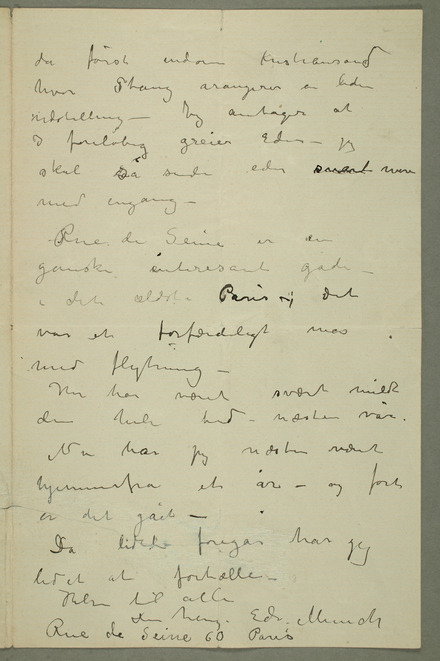 da først indom Kristiansand
hvor Thang arangerer en liden
udstilling – Jeg antager at
I foreløbig greier Eder – jeg
skal så sende eder mere
med engang –
Rue de Seine er en
ganske interesant gade –
i det ældste Paris – det
var et forfærdeligt mas
med flytning –
Her har været svært mildt
den hele tid – næsten vår.
Nu har jeg næsten været
hjemmefra et år – og fort
er det gået –
Da foregår har jeg
lidet at fortælle –
Hilsen til alle
Eder heng. Edv. Munch
Rue de Seine 60 Paris